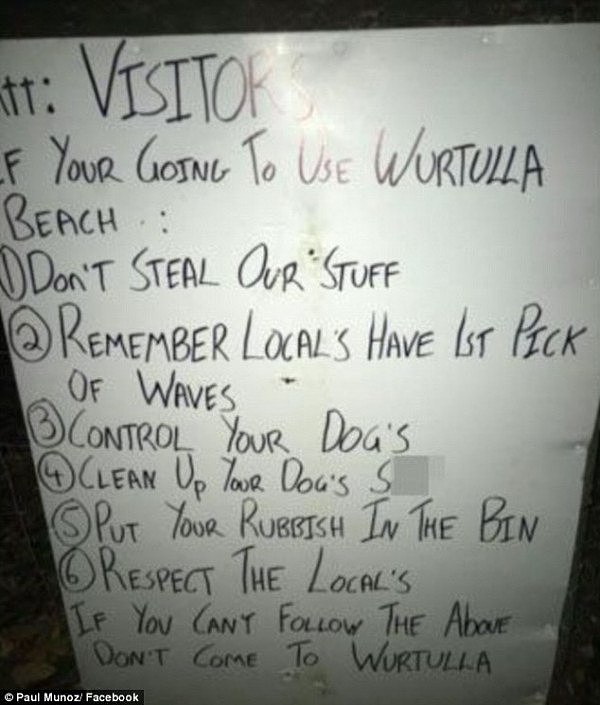 Att: VISITORS
IF YOUR GOING TO USE WURTULLA
BEACH :
① DON'T STEAL OUR STUFF
② REMEMBER LOCAL'S HAVE 1ST PICK
OF WAVES
③ CONTROL YOUR DOG'S
④ CLEAN UP YOUR DOG'S S
⑤ PUT YOUR RUBBISH IN THE BIN
⑥ RESPECT THE LOCAL'S
IF YOU CANT FOLLOW THE ABOVE
DON'T COME TO WURTULLA
© Paul Munoz/ Facebook